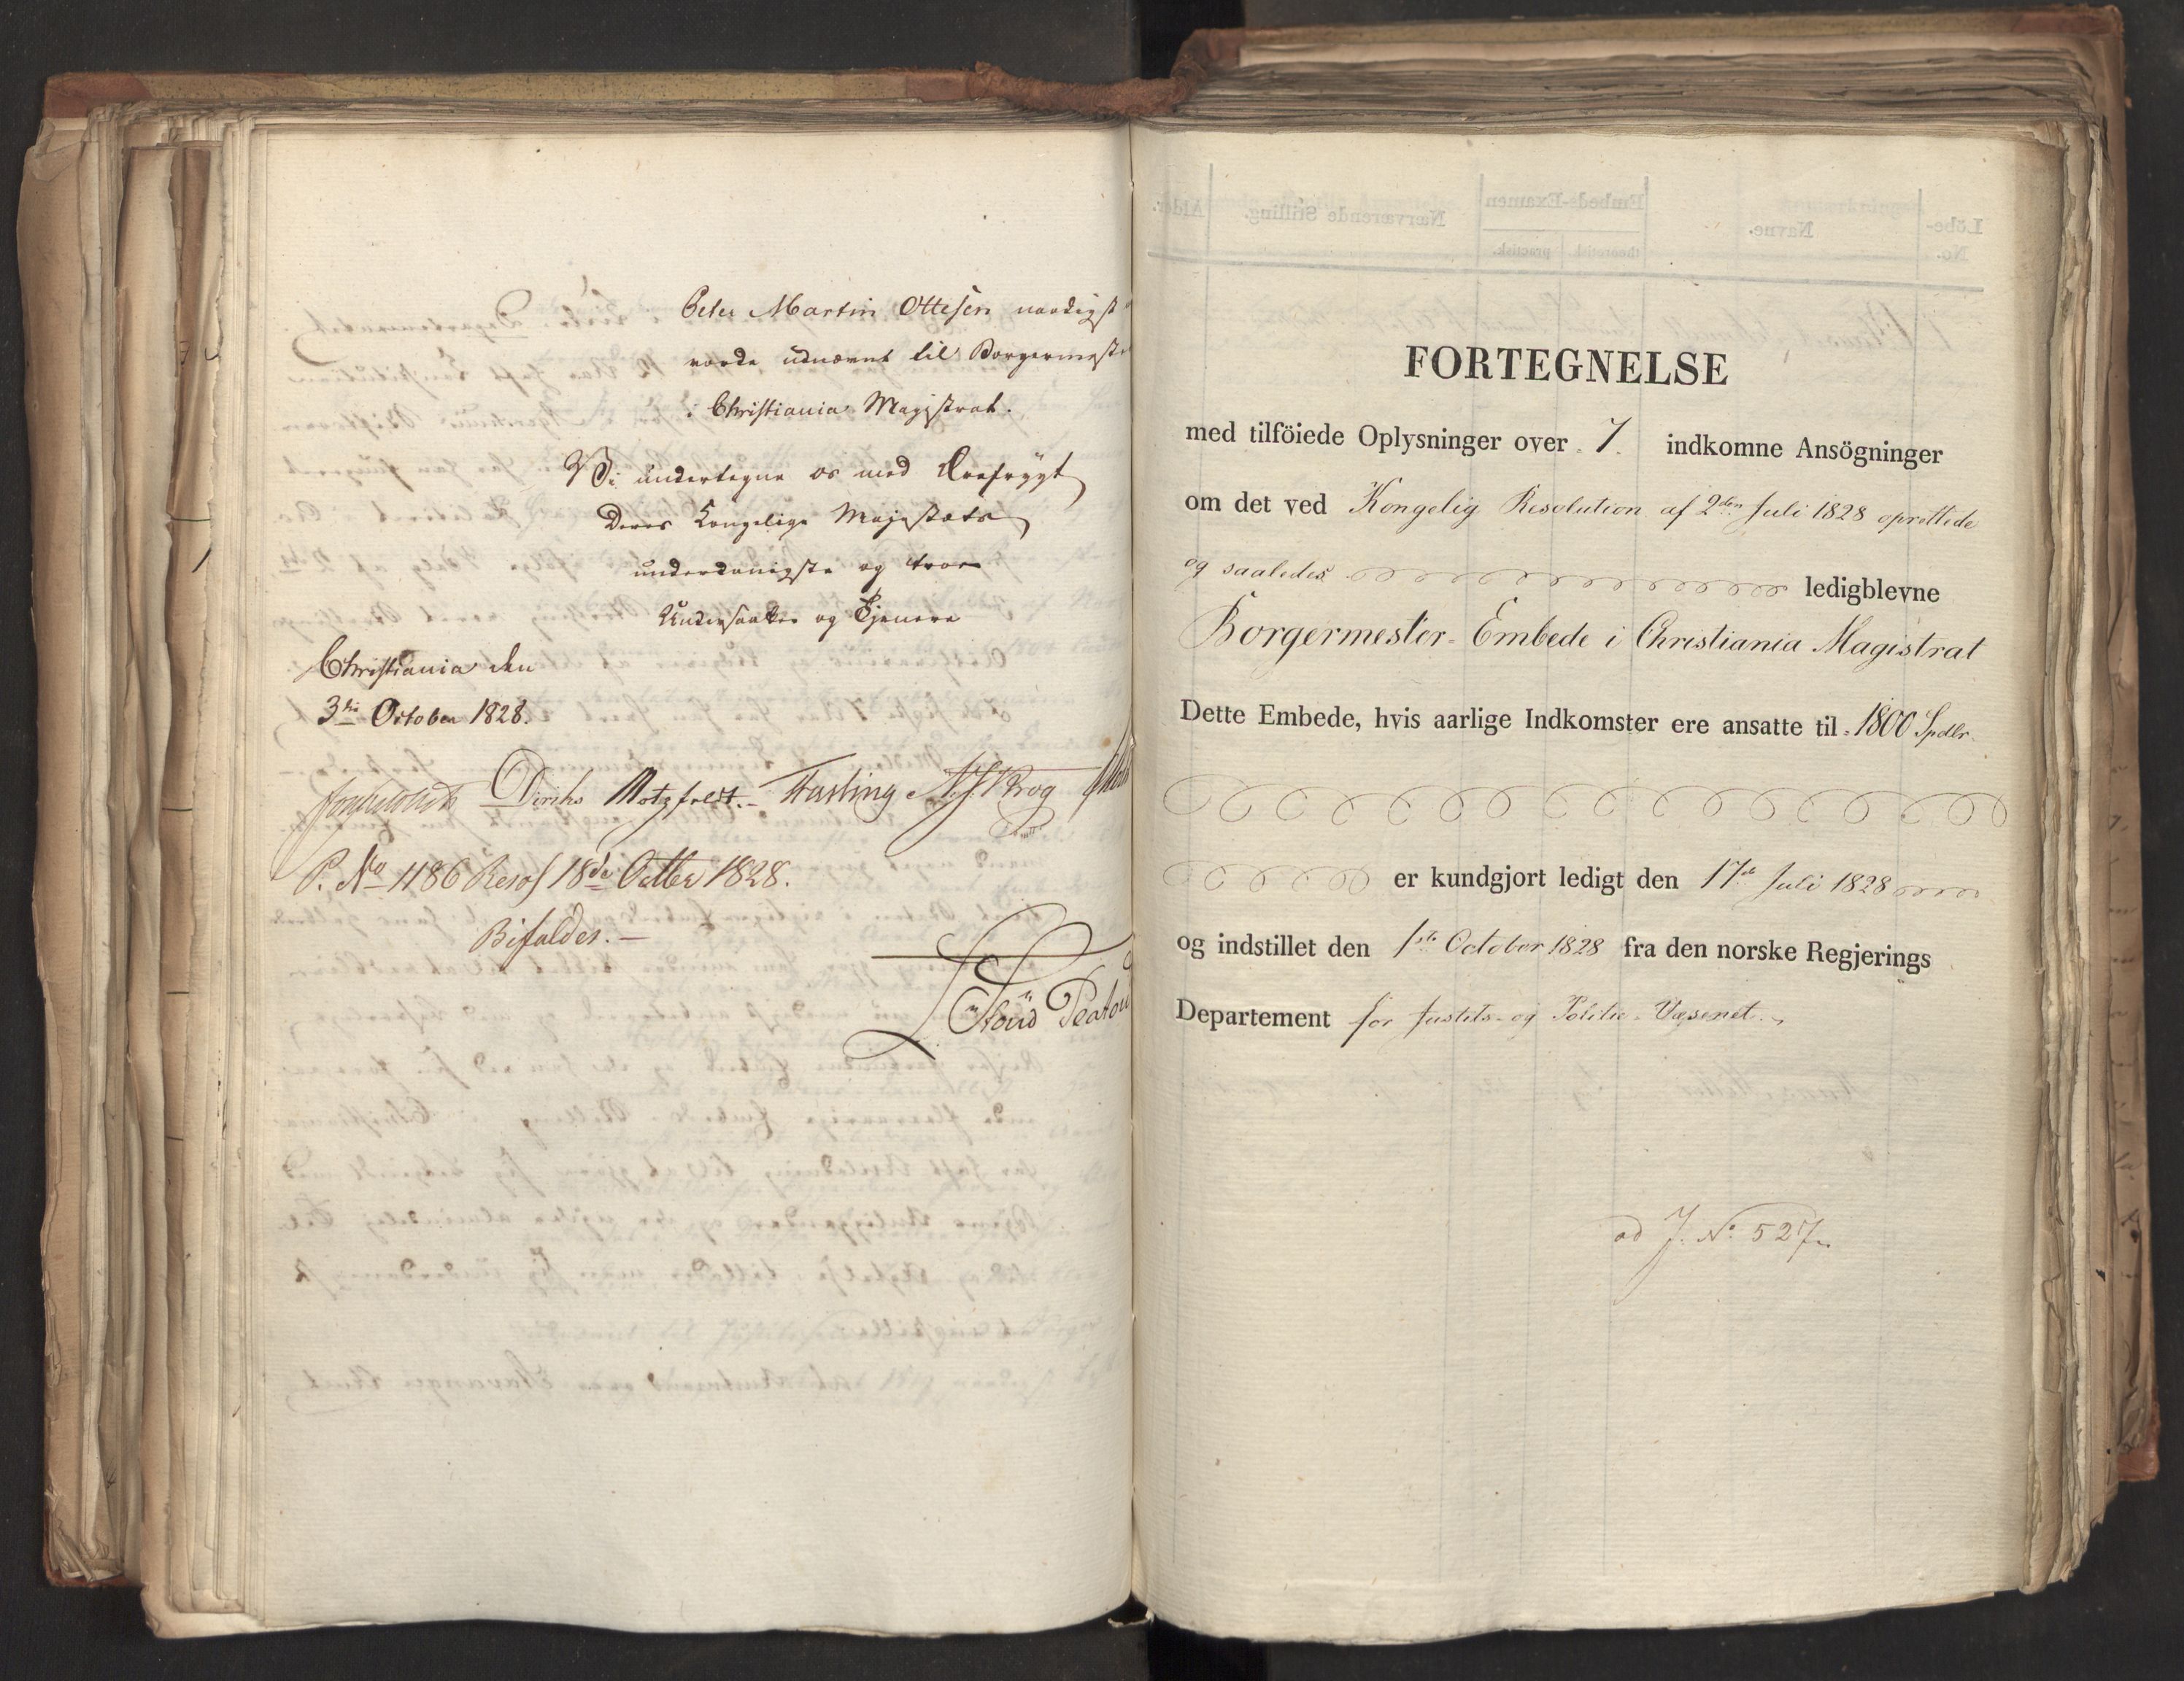 Peter Martin Ottesen naadigst
vorde udnævnt til Borgermester
i Christiania Magistrat.
Vi undertegne os med Ærefrygt
Deres Kongelige Majestæts
underdanigste og troe
Undersaatter og Tjenere
Christiania den
3die October 1828.
Diriks Motzfeldt.- Fasting
P. No 1186 Resol 18de Octbr 1828.
Bifaldes.-
FORTEGNELSE
med tilföiede Oplysninger over 7. indkomne Ansögninger
om det ved Kongelig Resolution af 2den Juli 1828 oprettede
og saaledes ledigblevne
Borgermester-Embede i Christiania Magistrat
Dette Embede, hvis aarlige Indkomster ere ansatte til 1800 Spdlr
er kundgjort ledigt den 17de Juli 1828
og indstillet den 1ste October 1828 fra den norske Regjerings
Departement for Justits- og Politie-Væsenet.
ad J. No 527